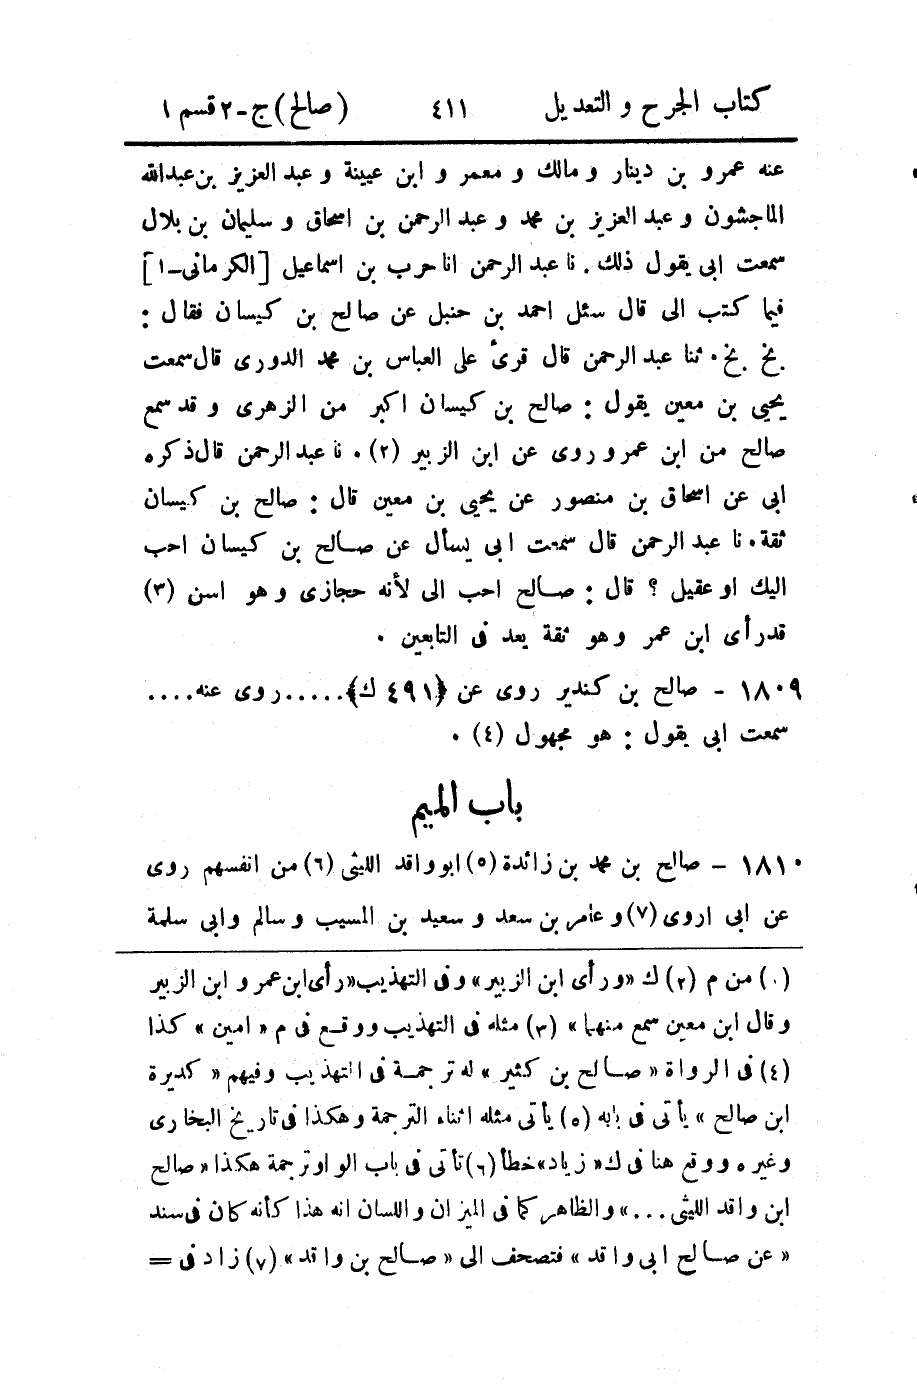 كتاب الجرح و التعديل ٤١١ (صالح) ج-٢ قسم ١
عنه عمرو بن دينار و مالك و معمر و ابن عيينة و عبد العزيز بن عبدالله
الماجشون و عبد العزيز بن محمد و عبد الرحمن بن اسحاق و سليمان بن بلال
سمعت ابى يقول ذلك . نا عبد الرحمن انا حرب بن اسماعيل [الكرمانى-١]
فيما كتب الى قال سئل احمد بن حنبل عن صالح بن كيسان فقال :
بخ بخ . ثنا عبد الرحمن قال قرئ على العباس بن محمد الدورى قال سمعت
يحيى بن معين يقول : صالح بن كيسان اكبر من الزهرى و قد سمع
صالح من ابن عمر و روى عن ابن الزبير (٢) . نا عبد الرحمن قال ذكره
ابى عن اسحاق بن منصور عن يحيى بن معين قال : صالح بن كيسان
ثقة . نا عبد الرحمن قال سمعت ابى يسأل عن صالح بن كيسان احب
اليك او عقيل ؟ قال : صالح احب الى لأنه حجازى و هو اسن (٣)
قد رأى ابن عمر و هو ثقة يعد فى التابعين .
١٨٠٩ - صالح بن كندير روى عن ﴿٤٩١ ك﴾..... روى عنه ....
سمعت ابى يقول : هو مجهول (٤) .
باب الميم
١٨١٠ - صالح بن محمد بن زائدة (٥) ابو واقد الليثى (٦) من انفسهم روى
عن ابى اروى (٧) و عامر بن سعد و سعيد بن المسيب و سالم وابى سلمة
(١) من م (٢) ك «ورأى ابن الزبير» وفى التهذيب «رأى ابن عمر و ابن الزبير
و قال ابن معين سمع منهما» (٣) مثله فى التهذيب ووقع فى م « امين » كذا
(٤) فى الرواة « صالح بن كثير » له ترجمة فى التهذيب وفيهم « كديرة
ابن صالح » يأتى فى بابه (٥) يأتى مثله اثناء الترجمة و هكذا فى تاريخ البخارى
و غيره ووقع هنا فى ك « زياد» خطأ (٦) تأتى فى باب الواو ترجمة هكذا « صالح
ابن واقد الليثى ...» والظاهر كما فى الميزان واللسان انه هذا كأنه كان فى سند
« عن صالح ابى واقد » فتصحف الى « صالح بن واقد » (٧) زاد فى =